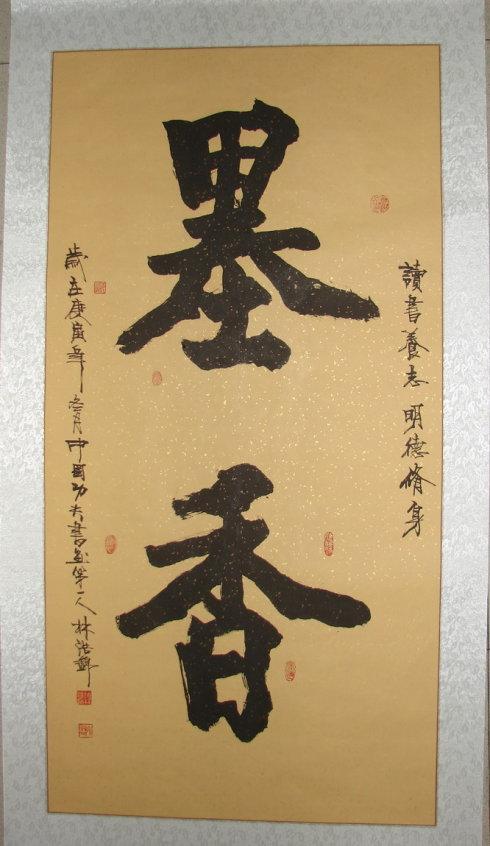 讀書養志 明德脩身
墨香
歲在庚寅年冬月中国功夫書画第一人林浩